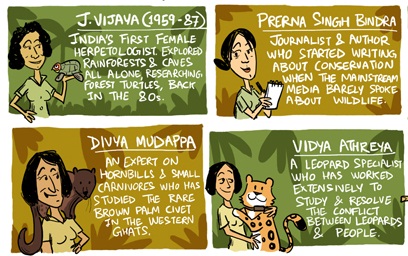 J. VIJAYA (1959-87)
INDIA'S FIRST FEMALE
HERPETOLOGIST EXPLORED
RAINFORESTS & CAVES
ALL ALONE, RESEARCHING
FOREST TURTLES, BACK
IN THE 80s.
PRERNA SINGH BINDRA
JOURNALIST & AUTHOR
WHO STARTED WRITING
ABOUT CONSERVATION
WHEN THE MAINSTREAM
MEDIA BARELY SPOKE
ABOUT WILDLIFE.
DIVYA MUDAPPA
AN EXPERT ON
HORNBILLS & SMALL
CARNIVORES WHO HAS
STUDIED THE RARE
BROWN PALM CIVET
IN THE WESTERN
GHATS.
VIDYA ATHREYA
A LEOPARD SPECIALIST
WHO HAS WORKED
EXTENSIVELY TO
STUDY & RESOLVE
THE CONFLICT
BETWEEN LEOPARDS
& PEOPLE.